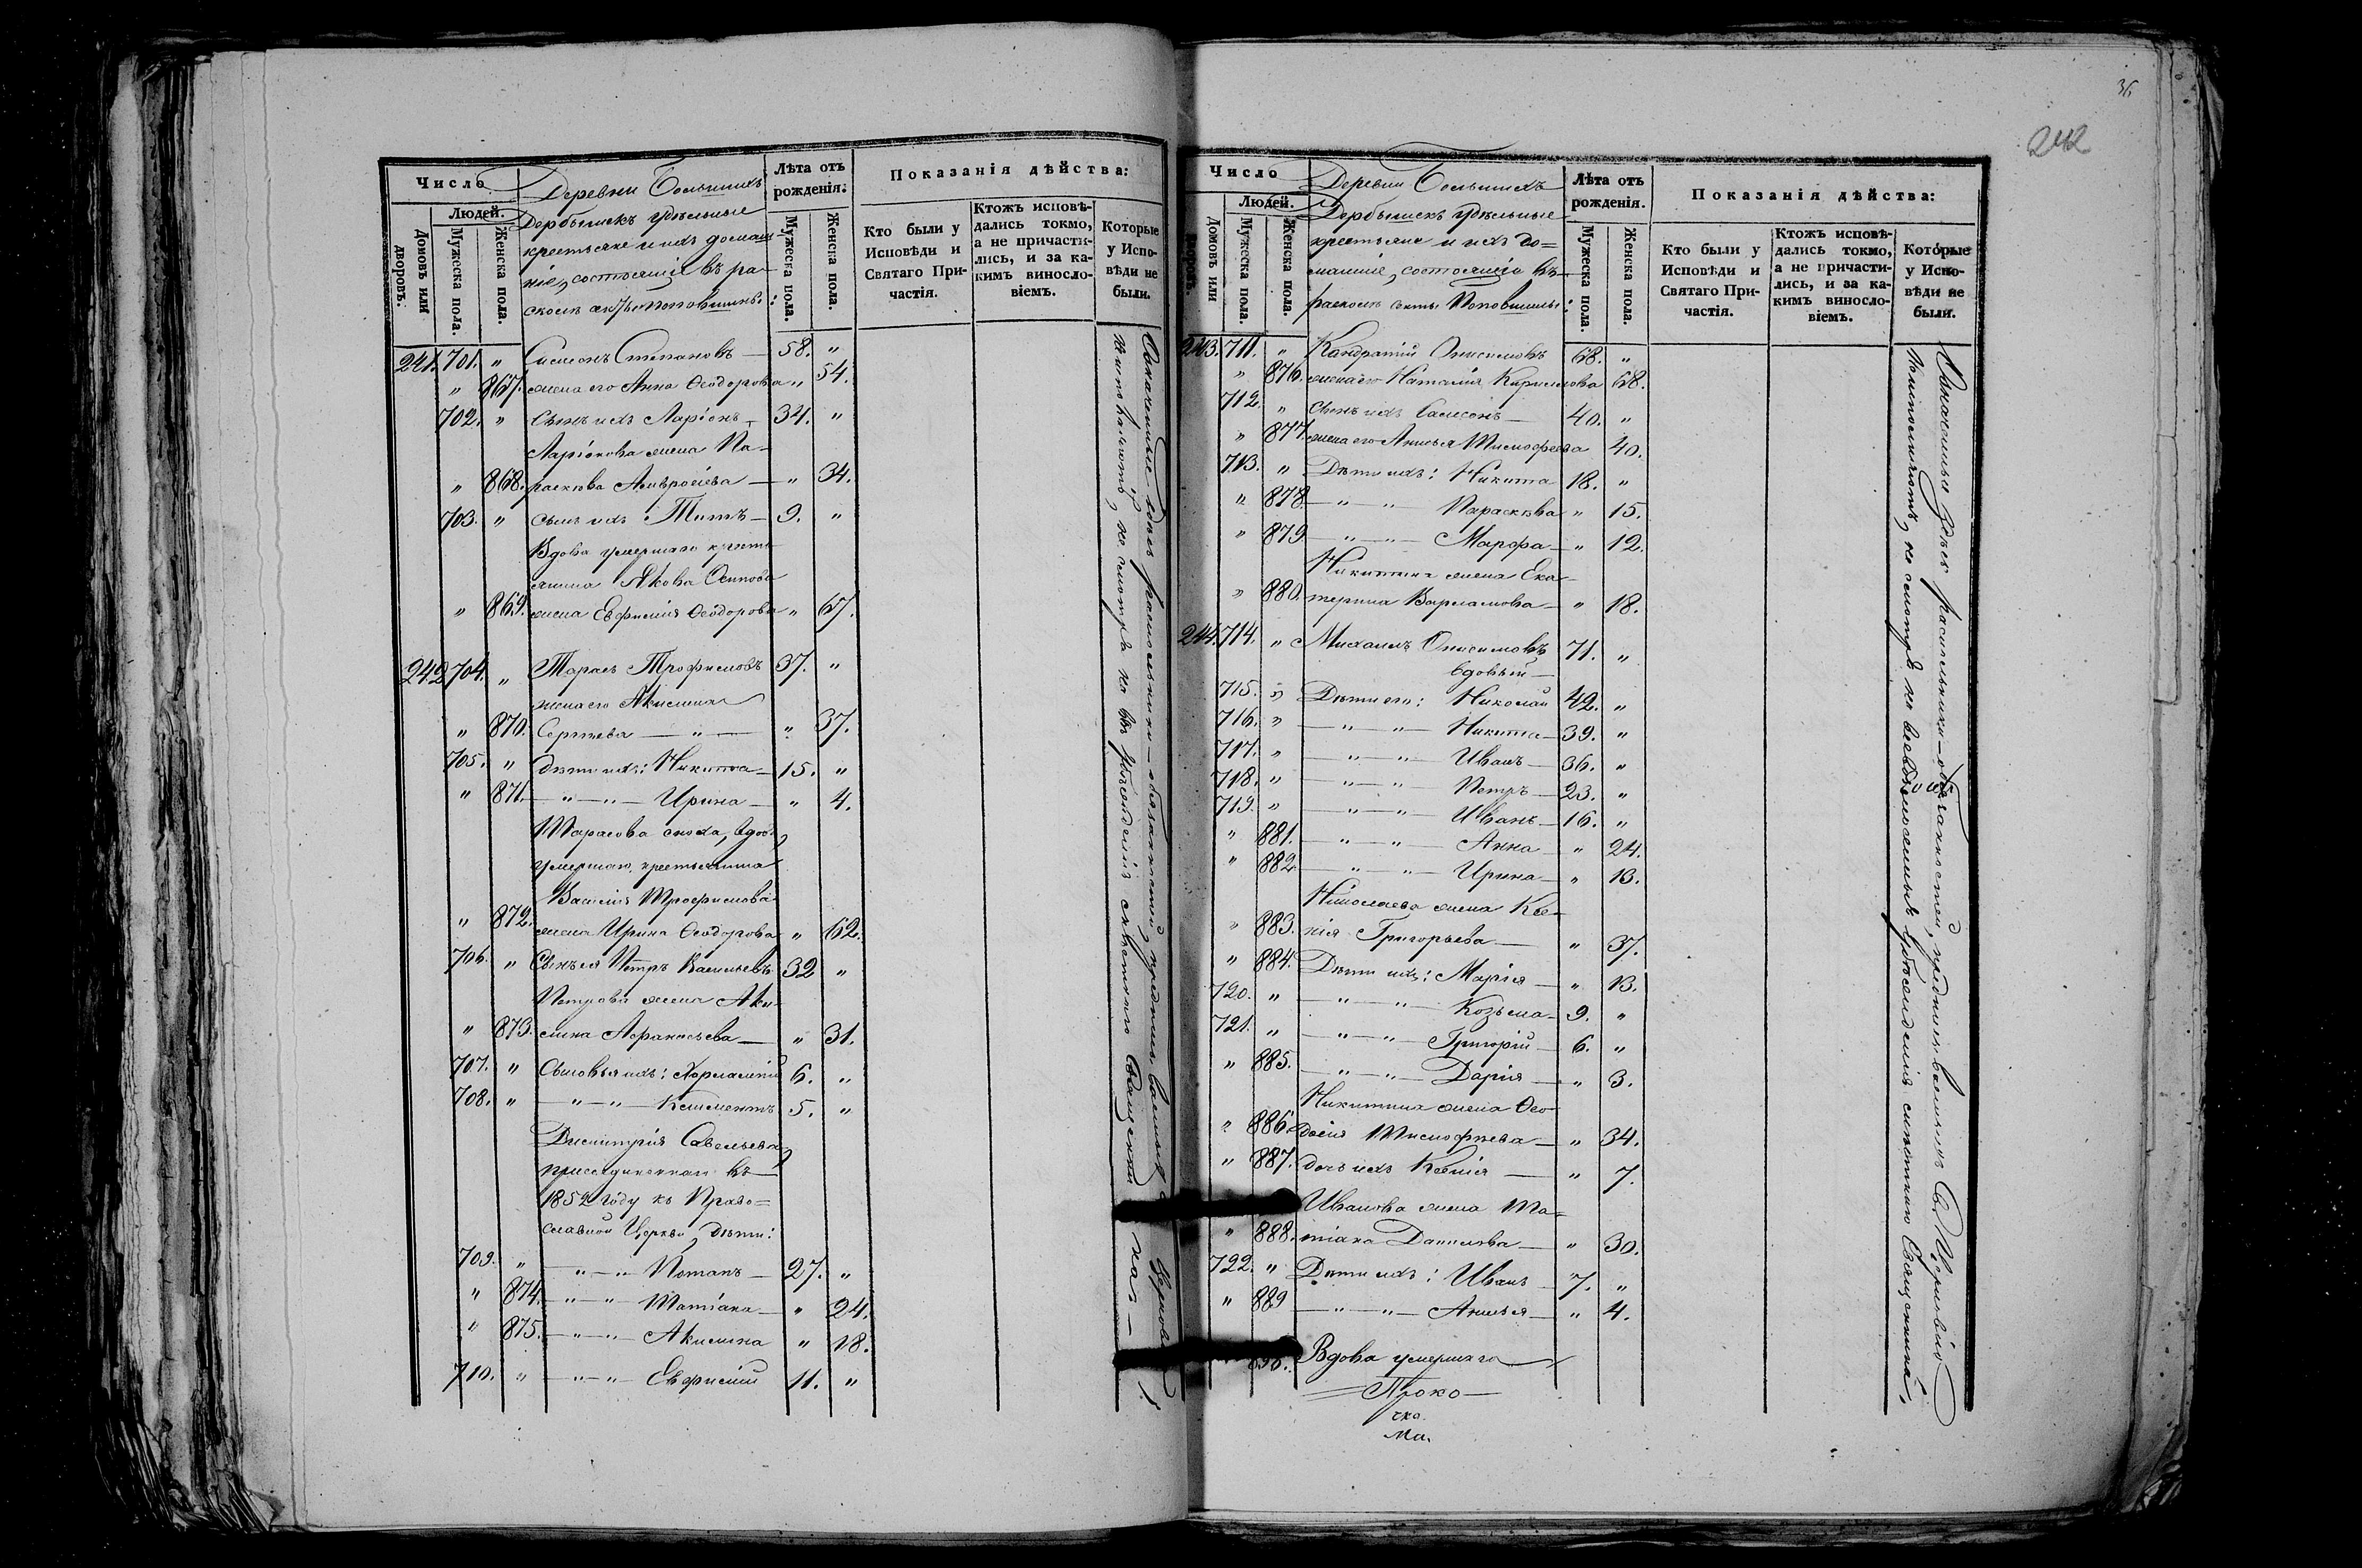 Число
Людей.
Домовъ или дворовъ.
Мужеска пола.
Женска пола.
Деревни Большихъ
Дербышкъ удѣльные
крестьяне и ихъ домаш-
ніе, состоящіе въ ра-
сколѣ секты поповщины:
Лѣта отъ рожденія:
Мужеска пола.
Женска пола.
Показанія дѣйства:
Кто были у Исповѣди и Святаго При-частія.
Ктожъ исповѣ-дались токмо, а не причасти-лись, и за ка-кимъ винослο-віемъ.
Которые у Испо-вѣди не были.
241. 701. " Симеонъ Степановъ — 58. "
" 867. жена его Анна Ѳеодорова " 54.
702. " Сынъ ихъ Ларіонъ — 34. "
Ларіонова жена Па-
" 868. раскева Амвросіева — " 34.
703. " Сынъ ихъ Титъ — 9. "
Вдова умершаго кресть-
янина Якова Осипова
" 869. жена Евфимія Ѳеодорова " 67.
242. 704. " Тарасъ Трофимовъ 37. "
жена его Акилина
" 870. Сергѣева — " — " 37.
705. " Дѣти ихъ: Никита — 15. "
" 871. — " — " — Ирина — " 4.
Тарасова сноха, вдова
умершаго крестьянина
Василія Трофимова
" 872. жена Ирина Ѳеодорова " 62.
706. " Сынъ ея Петръ Васильевъ 32 "
Петрова жена Аки-
" 873. лина Афанасьева — " 31.
707. " Сыновья ихъ: Харлампій 6. "
708. " — " — " — Климентъ 5. "
Димитрія Савельева
присоединеннаго въ
1852 году къ Право-
славной Церкви, дѣти:
709. " — " — " Потапъ — 27. "
" 874. — " — " Татіана — " 24.
" 875. — " — " — Акилина " 18.
710. " — " — " — Евфимій 11. "
Означенные здѣсь раскольники — обязанностей,
36.
242
Число
Людей.
Домовъ или дворовъ.
Мужеска пола.
Женска пола.
Деревни Большихъ
Дербышкъ удѣльные
крестьяне и ихъ до-
машніе, состоящіе въ
расколѣ секты Поповщины:
Лѣта отъ рожденія.
Мужеска пола.
Женска пола.
Показанія дѣйства:
Кто были у Исповѣди и Святаго При-частія.
Ктожъ исповѣ-дались токмо, а не причасти-лись, и за ка-кимъ винослο-віемъ.
Которые у Испо-вѣди не были.
243. 711. " Кандратій Онисимовъ 68. "
" 876. жена его Наталія Кирилова 68.
712. " сынъ ихъ Самсонъ — 40. "
" 877. жена его Анисья Тимофеева 40.
713. " Дѣти ихъ: Никита 18. "
" 878. — " — " — Параскева " 15.
" 879. — " — " — Марфа — " 12.
Никитина жена Ека-
" 880. терина Варламова — " 18.
244. 714. " Михаилъ Онисимовъ 71. "
вдовый —
715. " Дѣти его: Николай 42. "
716. " — " — " — Никита — 39. "
717. " — " — " — Иванъ — 36. "
718. " — " — " — Петръ — 23. "
719. " — " — " — Иванъ — 16. "
" 881. — " — " — Анна — " 24.
" 882. — " — " — Ирина — " 13.
Николаева жена Ксе-
" 883. нія Григорьева — " 37.
" 884. Дѣти ихъ: Марія — " 13.
720. " — " — " — Козьма — 9. "
721. " — " — " — Григорій — 6. "
" 885. — " — " — Дарія — " 3.
Никитина жена Ѳео-
" 886. досія Тимофѣева — " 34.
" 887. дочь ихъ Ксенія — " 7.
Иванова жена Та-
" 888. тіана Данилова — " 30.
722. " Дѣти ихъ: Иванъ 7. "
" 889 — " — " — Анисья — " 4.
890. Вдова умершаго
Проко —